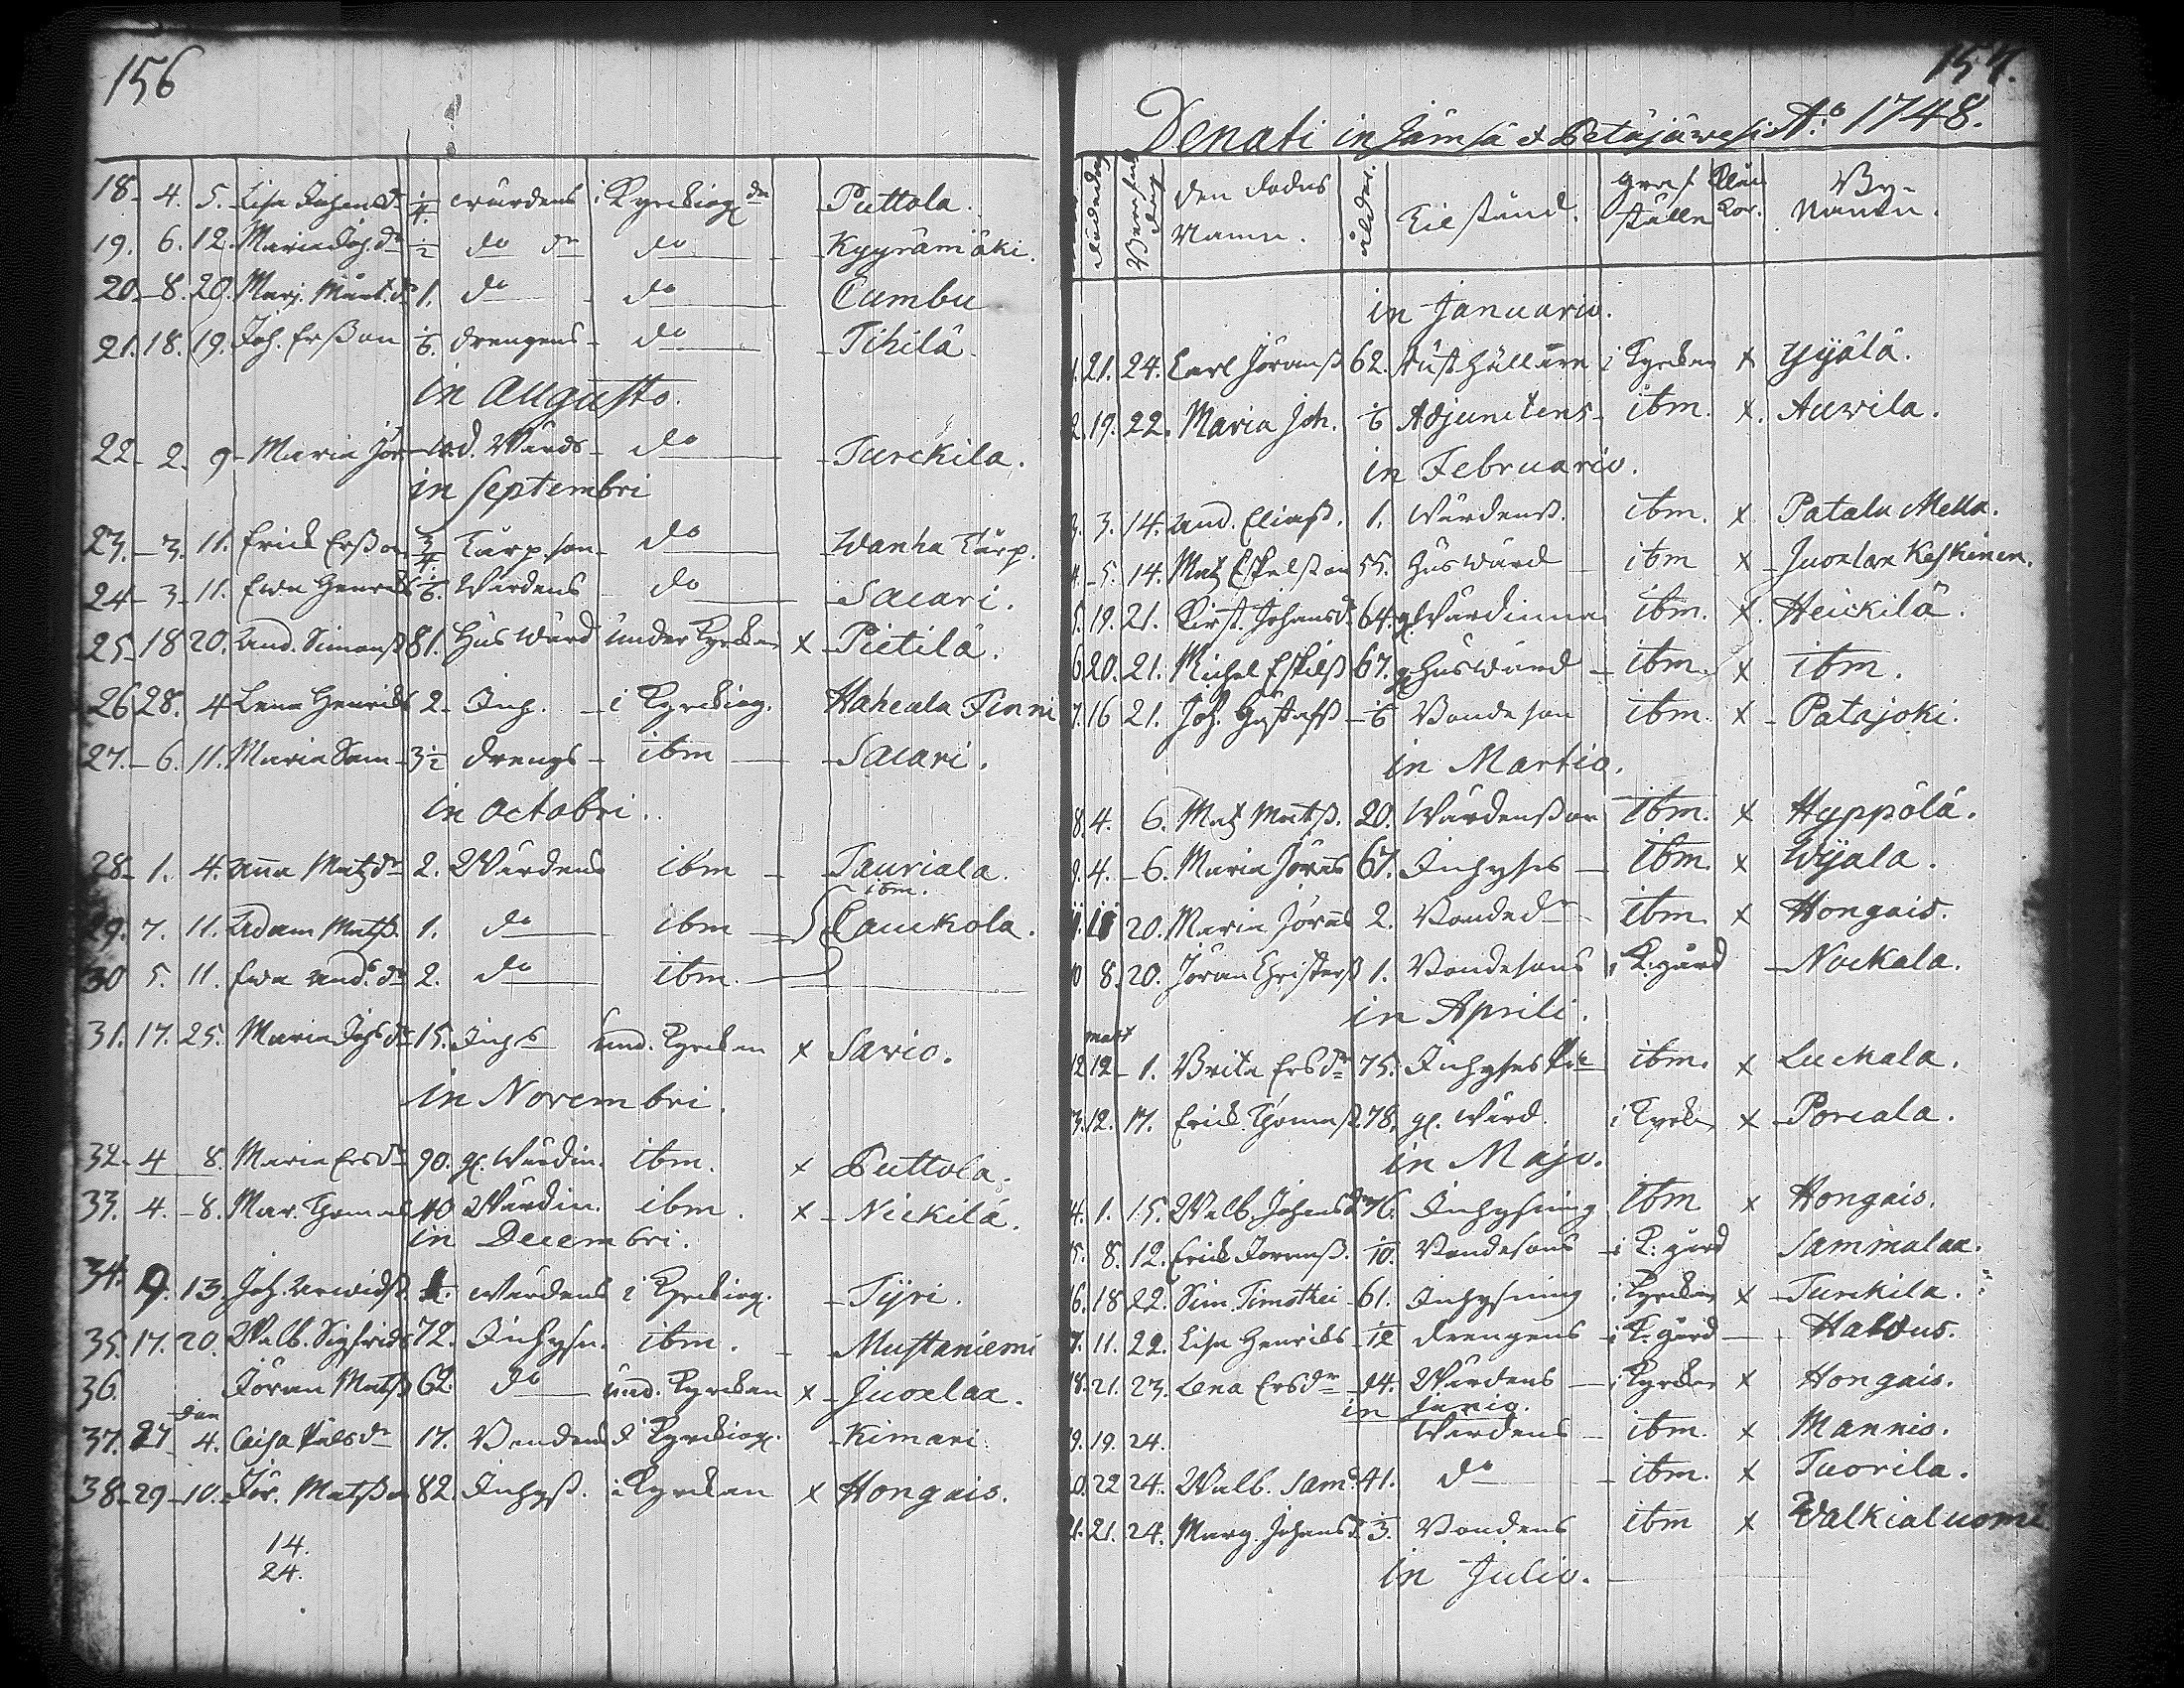 156
18. 4. 5. Lisa Johans dr 1/4 wärdens i Kyrckiog dn Puttola.
19. 6. 12. Maria Joh. dr 1/2 do dr do Kyyrämäki.
20. 8. 20. Marj. Mårt. dr 1. do do Cumbu
21. 18. 19. Joh. Erßon 1/6. drengens do Tihilä.
in Augusto.
22. 2. 9. Maria Jör. Wärds do Turckila.
in Septembri
23. 3. 11. Erick Erßon 3/4 Tårp. son do Wanha Tårp.
24. 3. 11. Ewa Henrics 1/6. Wärdens do Sacari.
25. 18 20. And. Simonß 81. Huswärd under Kyrckan x Pietilä.
26 28. 4 Lena Henrics 2. Inh. i Kyrckiog. Haheala Finni
27. 6. 11. Maria Sam 3 1/2 drengs ibm Sacari.
in Octobri.
28. 1. 4. Anna Matz dr 2. Wärdens ibm Tauriala.
ibm.
29. 7. 11. Adam Matß. 1. do ibm Cauckola.
30 5. 11. Ewa And. dr 2. do ibm.
31. 17. 25. Maria Johs dr 15. Inhs und. Kyrckan x Sario.
in Novembri.
32. 4 8. Maria Ersdr 90. gl. Wärdin. ibm. x Puttola.
33. 4. 8. Mar. Thomas 40 Wärdin. ibm. x Nickilä.
in Decembri.
34. 9. 13. Joh. Arwidß. wärdens i Kyrckiog. Tijri.
35. 17. 20. Walb. Sigfrids 72. Inhyses. ibm. Mustaniemi
36. Jöran Matß 62. do und. Kyrckan x Juoxlax.
37. 27 4. Caisa Påls dr 17. Bondens i Kyrckiog. Kimari.
38. 29 10. Jör. Matßon 82. Inhyß. i Kyrckan x Hongais.
14.
24.
157.
Denati in Jämsä et Petäjäwesi Ao 1748.
dödedag Begrafn. dag den dodas Namn. ålder. Tilstånd. graf ställe By-Namn.
in Januario.
1. 21. 24. Carl Jöranß 62. Rusthållare i Kyrckan x Yijälä.
2. 19. 22. Maria Joh. 1/6 Adjunctens ibm. x. Auwila.
in Februario.
3. 3. 14. And. Eliaß. 1. Wärdenß. ibm. x Patala Mella.
4. 5. 14. Matz Eskelßon 55. Huswärd ibm x Juoxlax Keskinen.
5. 19. 21. Kirst. Johansdr 64. gl. Wärdinna ibm. x. Heickilä.
6 20. 21. Michel Eskelß 67. gl. Huswärd ibm. x ibm.
7. 16 21. Joh. Gustafß 1/6 Bondeson ibm. x Patajoki.
in Martio.
8. 4. 6. Matz Matß. 20. Wärdenßon ibm. x Hyppölä.
9. 4. 6. Maria Jörans 67. Inhyses ibm. x Wijala.
11. 18 20. Maria Jörans 2. Bonde dr ibm. x Hongais.
10 8. 20. Jöran Christerß 1. Bondesons i K:gård Nockala.
in Aprili.
mart
12 12 1. Brita Ersdr 75. Inhyses ibm. x Luckala.
13. 12. 17. Erick Thomaß 78. gl. wärd. i Kyrckn x Poreala.
in Majo.
14. 1. 15. Walb. Johansdr 76. Inhysing ibm x Hongais.
15. 8. 12. Erick Joranß. 1/10. Bondesons i K:gård Sammalax.
16. 18 22. Sim. Timothei 61. Inhysing i Kyrckan x Turckila.
17. 11. 22. Lisa Henrics 1/12 drengens i K:gård Haldus.
18. 21. 23. Lena Ersdr 24. Wärdens i Kyrckan x Hongais.
in Junio.
19. 19. 24. Wärdens ibm. x Mannis.
20. 22 24. Walb. Sams. 41. do ibm. x Tuorila.
21. 21. 24. Marg. Johansd 1/3. Bondens ibm x Walkialuomi
in Julio.